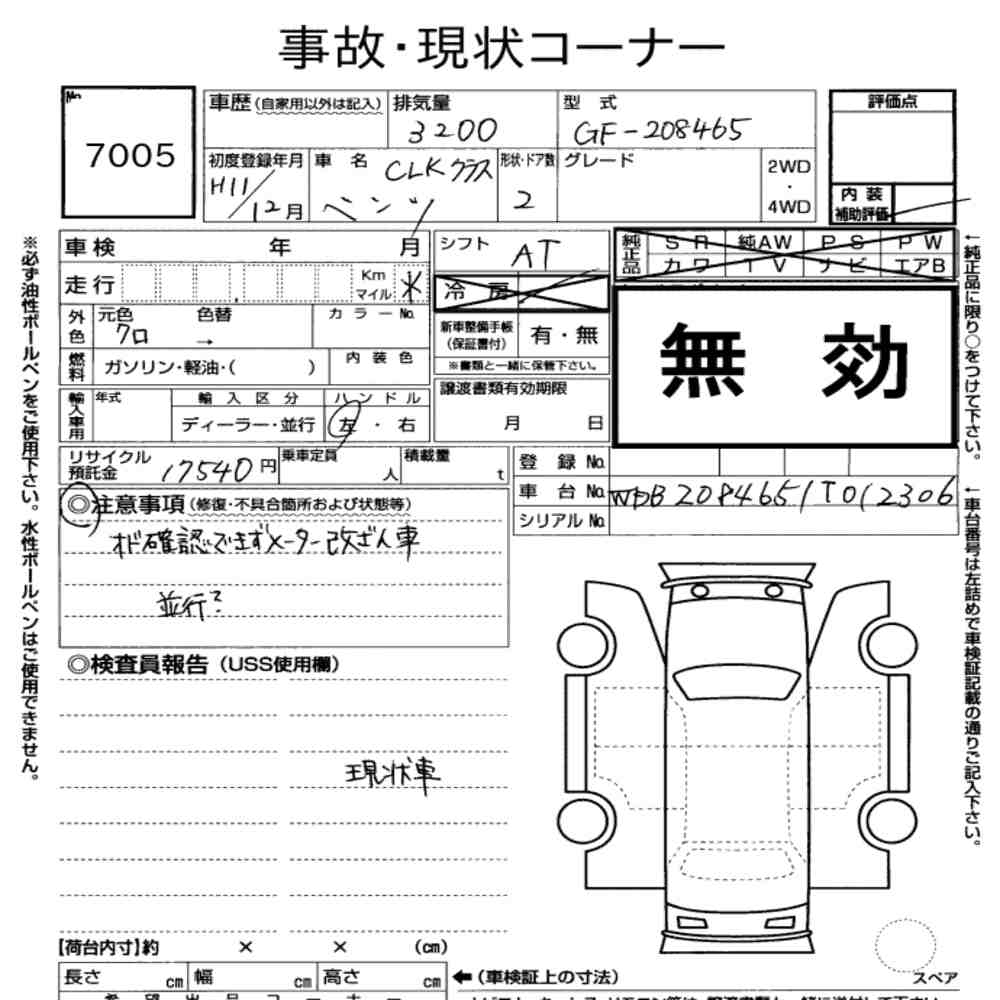 事故・現状コーナー
No.
7005
車歴(自家用以外は記入)
排気量
3200
型 式
GF-208465
評価点
初度登録年月
H11/12月
車 名
CLKクラス
ベンツ
形状・ドア数
2
グレード
2WD
・
4WD
内 装
補助評価
車検 年 月
シフト
AT
純正品
SR 純AW PS PW
カワ TV ナビ エアB
走行
Km
マイル
冷 房
無 効
外色
元色 色替
クロ →
カラーNo.
新車整備手帳
(保証書付)
有・無
※書類と一緒に保管下さい。
燃料
ガソリン・軽油・( )
内 装 色
譲渡書類有効期限
月 日
輸入車用
年式
輸 入 区 分
ディーラー・並行
ハ ン ド ル
左 ・ 右
リサイクル
預託金
17540円
乗車定員
人
積載量
t
登 録 No.
車 台 No.
WDB2084651T012306
シリアルNo.
◎注意事項(修復・不具合箇所および状態等)
オド確認できずメーター改ざん車
並行?
◎検査員報告(USS使用欄)
現状車
【荷台内寸】約 × × (cm)
長さ cm 幅 cm 高さ cm
←(車検証上の寸法)
スペア
※必ず油性ボールペンをご使用下さい。水性ボールペンはご使用できません。
←純正品に限り○をつけて下さい。
←車台番号は左詰めで車検証記載の通りご記入下さい。